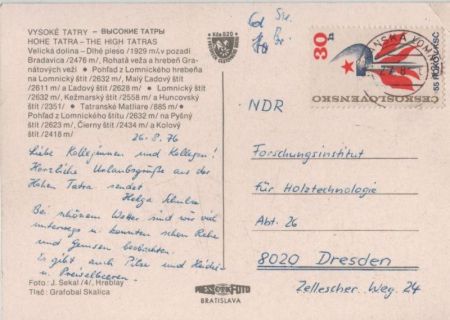 VYSOKÉ TATRY – ВЫСОКИЕ ТАТРЫ
HOHE TATRA – THE HIGH TATRAS
Velická dolina – Dlhé pleso /1929 m/,v pozadí
Bradavica /2476 m/, Rohatá veža a hrebeň Gra-
nátových veží • Pohľad z Lomnického hrebeňa
na Lomnický štít /2632 m/, Malý Ľadový štít
/2611 m/ a Ľadový štít /2628 m/ • Lomnický štít
/2632 m/, Kežmarský štít /2558 m/ a Huncovský
štít /2351/ • Tatranské Matliare /885 m/ •
Pohľad z Lomnického štítu /2632 m/ na Pyšný
štít /2623 m/, Čierny štít /2434 m/ a Kolový
štít /2418 m/
26-8.76
Liebe Kolleginnen und Kollegen!
Herzliche Urlaubsgrüße aus der
Hohen Tatra sendet
Helga
Bei schönem Wetter sind wir viel
unterwegs u. konnten schon Rehe
und Gemsen beobachten.
Es gibt auch Pilze und Heidel-
u. Preiselbeeren.
Foto: J. Sekal /4/, Hreblay
Tlač: Grafobal Skalica
PRESSFOTO
BRATISLAVA
Kčs 0,20
30 h
ČESKOSLOVENSKO
NDR
Forschungsinstitut
für Holztechnologie
Abt. 26
8020 Dresden
Zellescher Weg 24